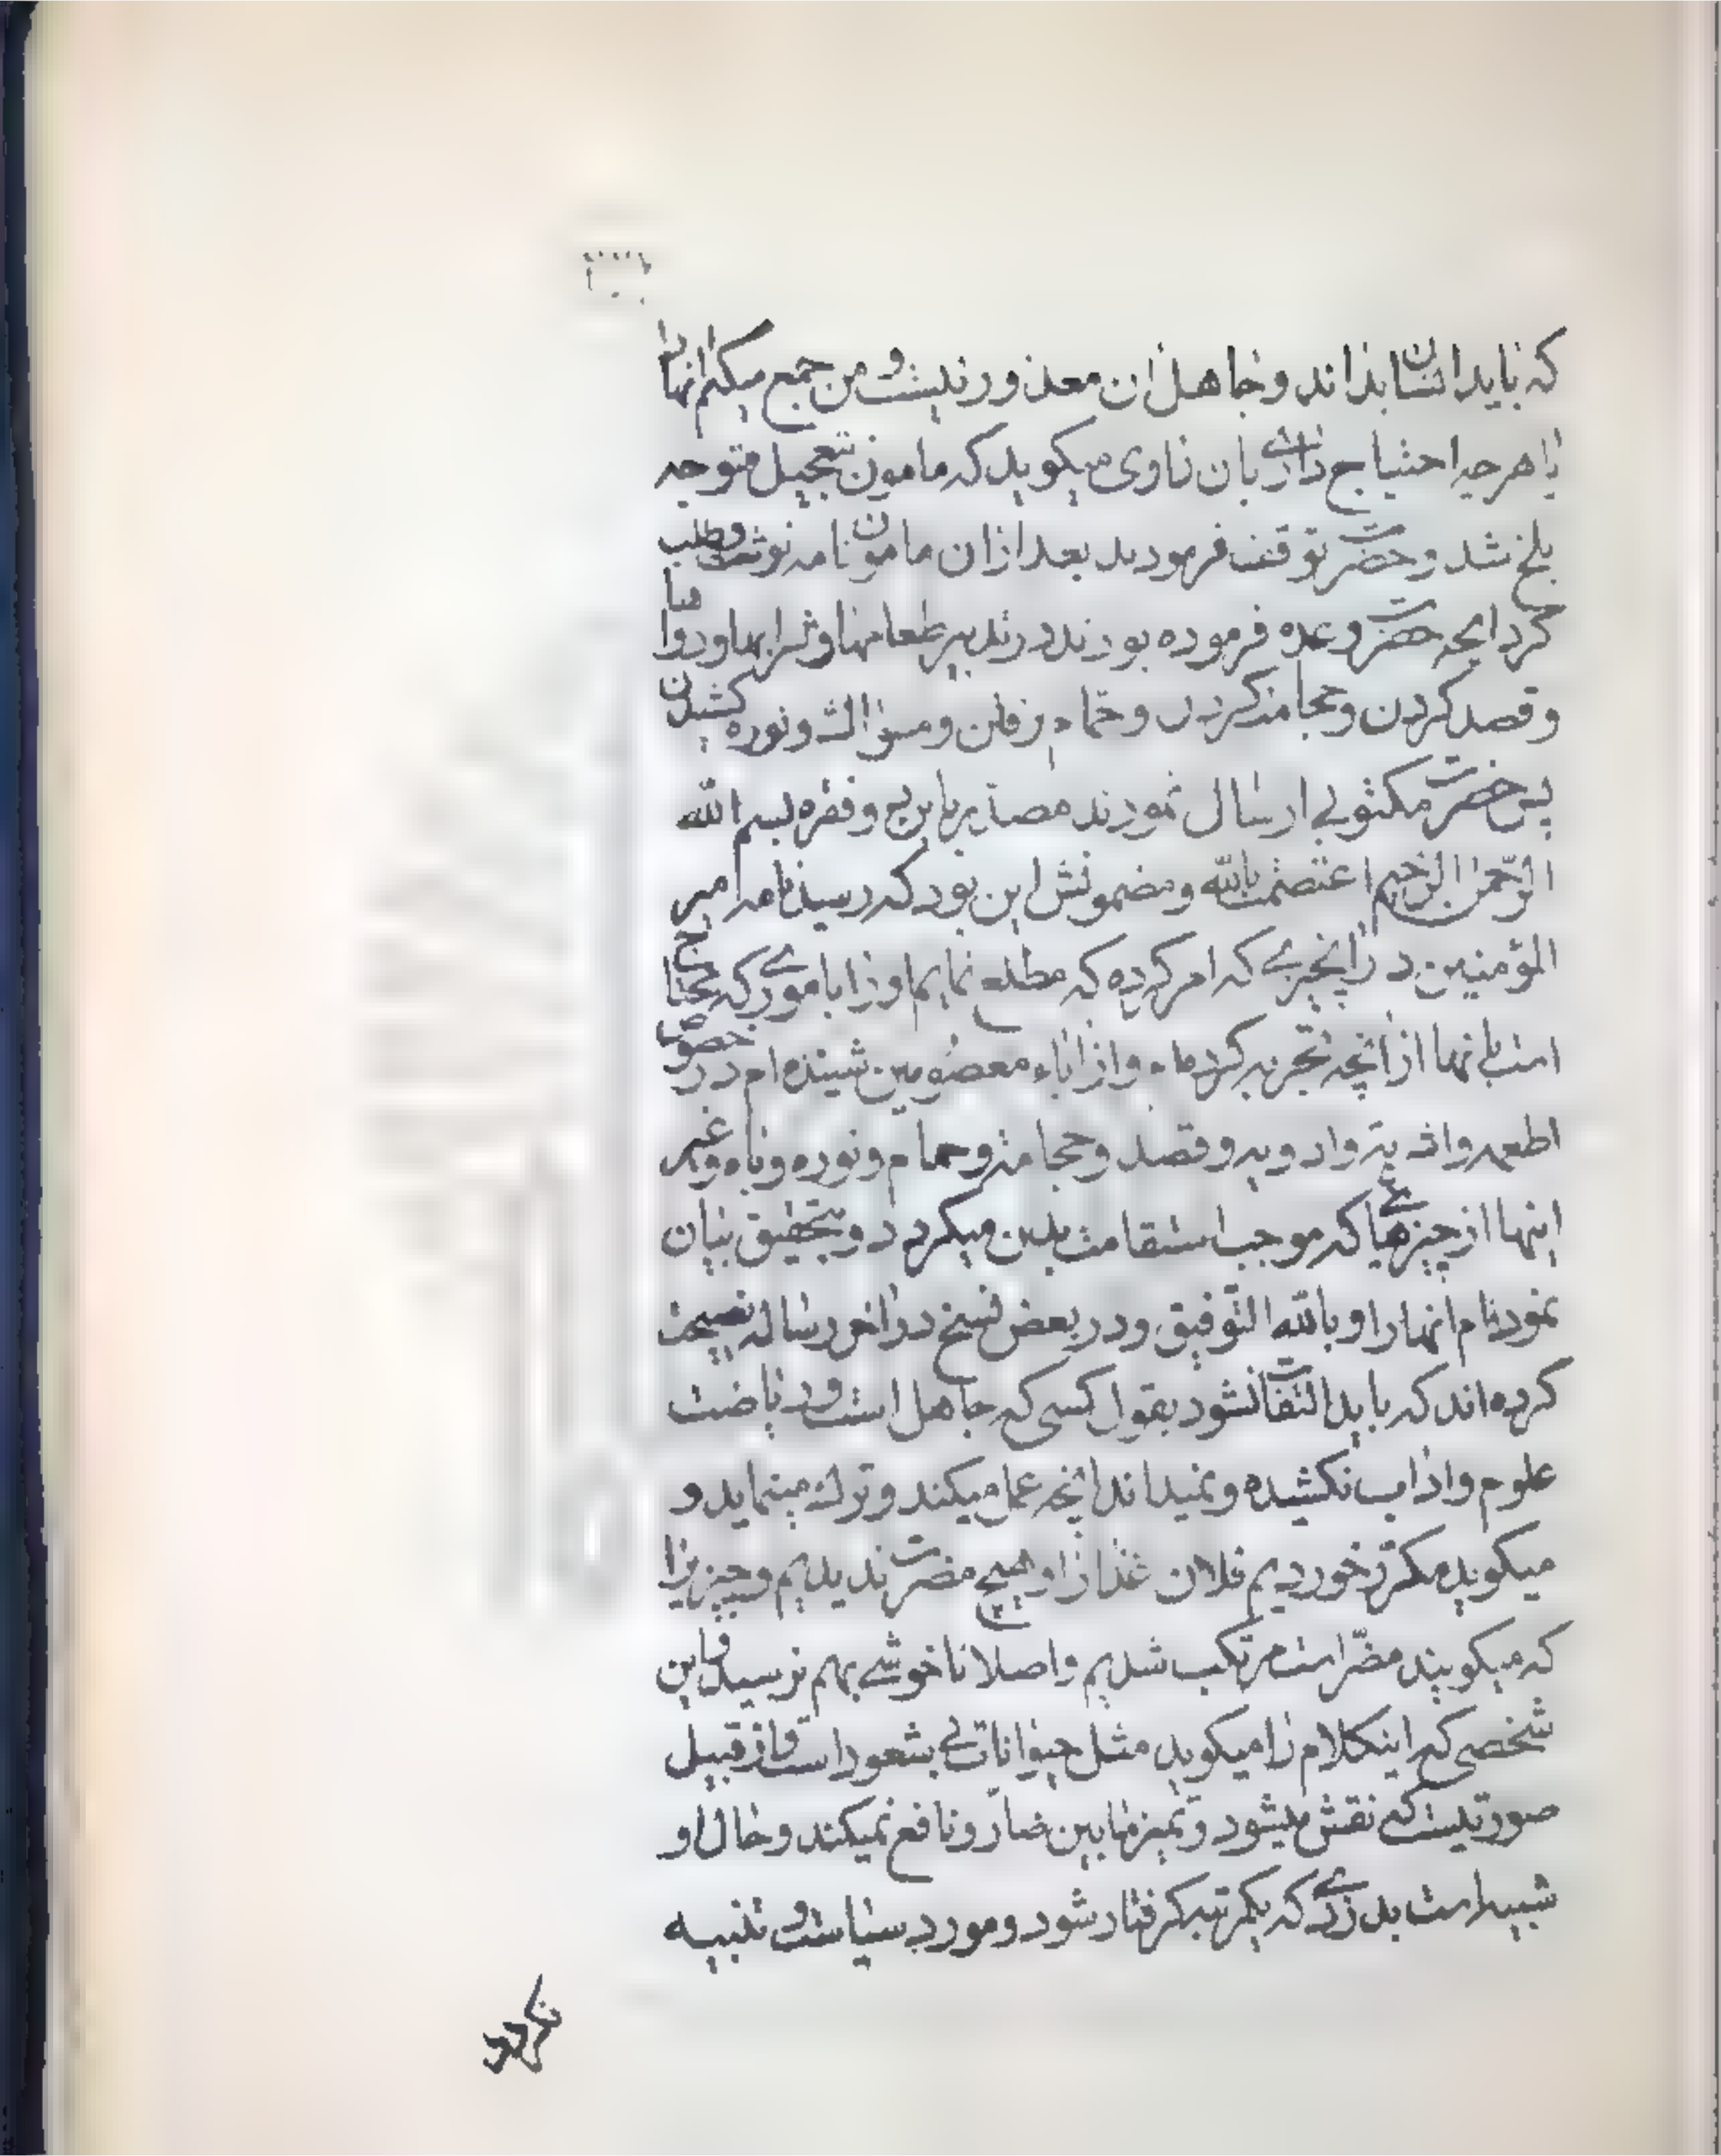 که باید انسان بداند و جاهل ان معذور نیست و من جمع میکنم انها را
با هر چه احتیاج داری بان راوی میکوید که مامون بتعجیل متوجه
بلخ شد و حضرت توقف فرمودند بعد ازان مامون نامه نوشت و طلب
کرد انچه حضرت وعده فرموده بودند در تدبیر طعامها و شرابها و دواها
و فصد کردن و حجامت کردن و حمام رفتن و مسواک و نوره کشیدن
پس حضرت مکتوبی ارسال نمودند مصدر باین و فقره بسم الله
الرّحمن الرّحیم اعتصمت بالله و مضمونش این بود که رسید نامه امیر
المؤمنین در انچیزی که امر کرده که مطلع نمایم او را باموری که محتاج
است بانها از انچه تجربه کرده‌ام و از اباء معصومین شنیده‌ام در خصوص
اطعمه و اشربه و ادویه و فصد و حجامت و حمام و نوره و باه و غیر
اینها از چیزهائی که موجب استقامت بدن میکردد و بتحقیق بیان
نمودنام انها را و بالله التّوفیق و در بعض نسخ در اخر رساله نصیحت
کرده‌اند که باید التفات نشود بقول کسی که جاهل است و ریاضت
علوم و اداب نکشیده و نمیداند انچه عمل میکند و ترک مینماید و
میکوید مکرّر خوردیم فلان غذا را و هیچ مضرت ندیدیم و چیزیرا
که میکویند مضّر است مرتکب شدیم و اصلا ناخوشی بهم نرسید و این
شخصی که اینکلام را میکوید مثل حیوانات بی شعور است و از قبیل
صورتیست که نقش میشود و تمیز مابین ضارّ و نافع نمیکند و حال او
شبیه است بدزدی که یکمرتبه کرفتار شود و مورد سیاست و تنبیه
نکردد